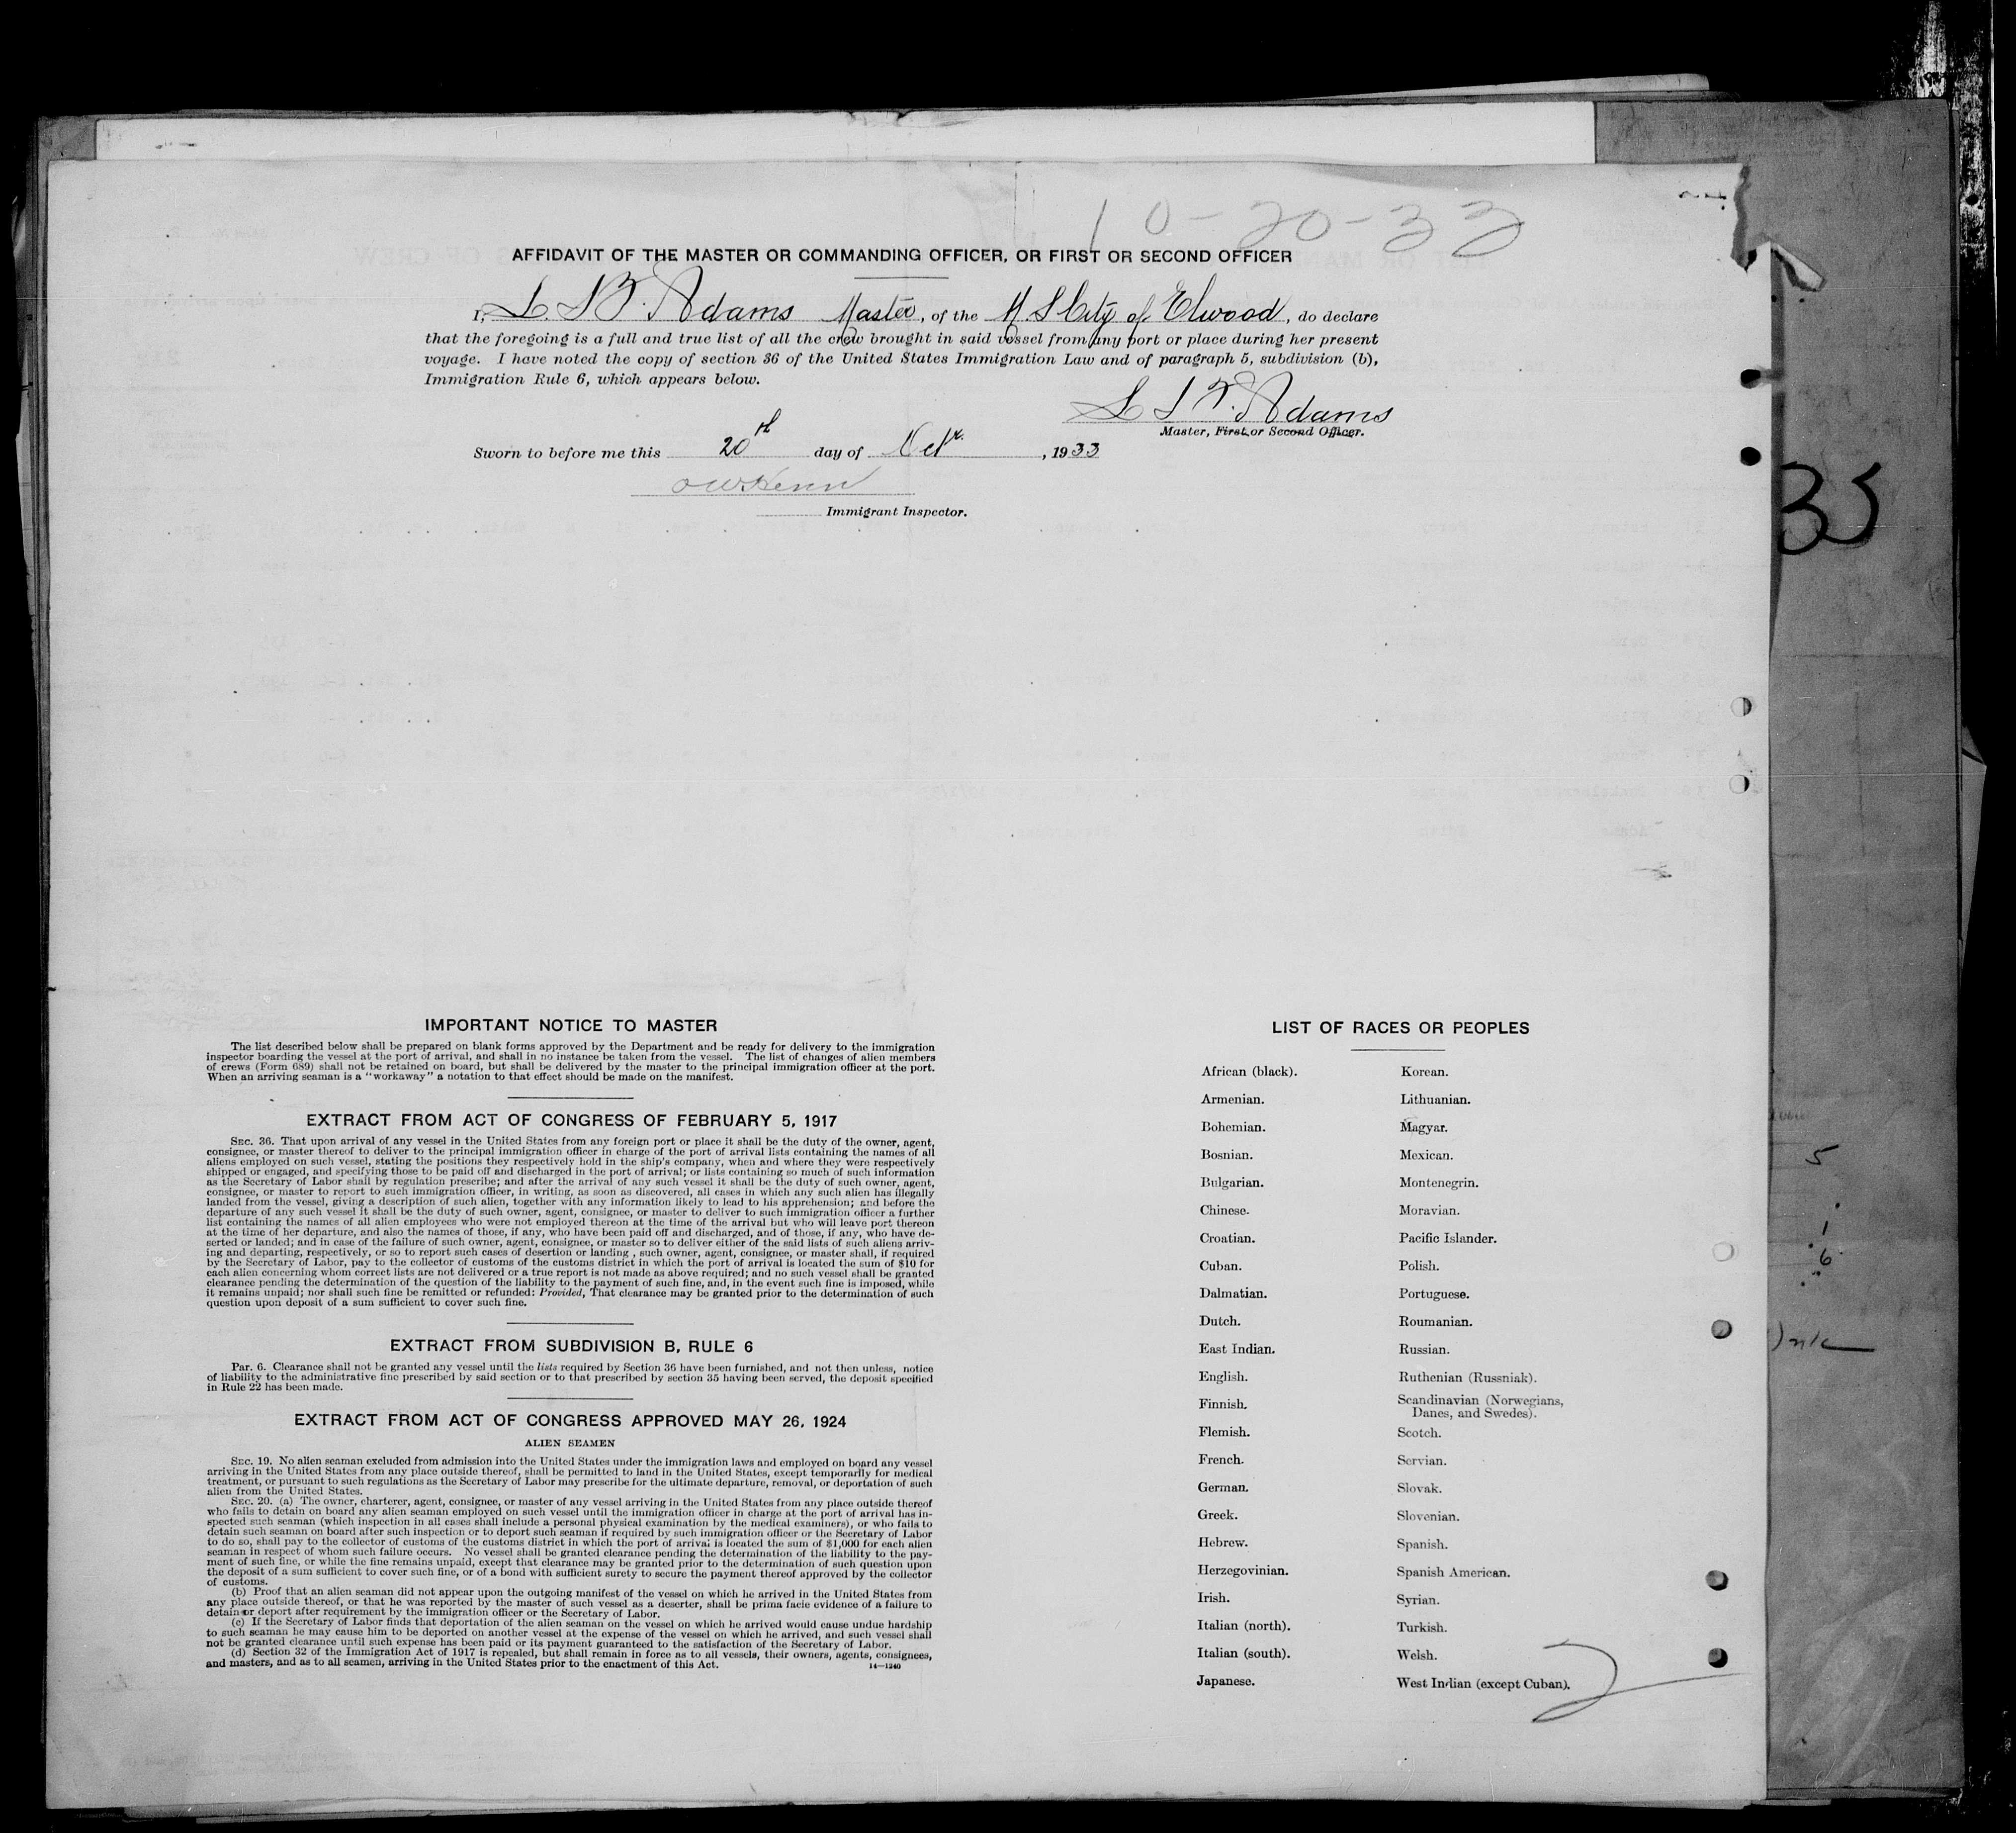 10-20-33
AFFIDAVIT OF THE MASTER OR COMMANDING OFFICER, OR FIRST OR SECOND OFFICER
I, Adams Master, of the M. S City of Elwood, do declare
that the foregoing is a full and true list of all the crew brought in said vessel from any port or place during her present
voyage. I have noted the copy of section 36 of the United States Immigration Law and of paragraph 5, subdivision (b),
Immigration Rule 6, which appears below.
Adams
Master, First or Second Officer.
Sworn to before me this 20th day of Oct, 1933
Immigrant Inspector.
35
IMPORTANT NOTICE TO MASTER
The list described below shall be prepared on blank forms approved by the Department and be ready for delivery to the immigration
inspector boarding the vessel at the port of arrival, and shall in no instance be taken from the vessel. The list of changes of alien members
of crews (Form 689) shall not be retained on board, but shall be delivered by the master to the principal immigration officer at the port.
When an arriving seaman is a "workaway" a notation to that effect should be made on the manifest.
EXTRACT FROM ACT OF CONGRESS OF FEBRUARY 5, 1917
SEC. 36. That upon arrival of any vessel in the United States from any foreign port or place it shall be the duty of the owner, agent,
consignee, or master thereof to deliver to the principal immigration officer in charge of the port of arrival lists containing the names of all
aliens employed on such vessel, stating the positions they respectively hold in the ship's company, when and where they were respectively
shipped or engaged, and specifying those to be paid off and discharged in the port of arrival; or lists containing so much of such information
as the Secretary of Labor shall by regulation prescribe; and after the arrival of any such vessel it shall be the duty of such owner, agent,
consignee, or master to report to such immigration officer, in writing, as soon as discovered, all cases in which any such alien has illegally
landed from the vessel, giving a description of such alien, together with any information likely to lead to his apprehension; and before the
departure of any such vessel it shall be the duty of such owner, agent, consignee, or master to deliver to such immigration officer a further
list containing the names of all alien employees who were not employed thereon at the time of the arrival but who will leave port thereon
at the time of her departure, and also the names of those, if any, who have been paid off and discharged, and of those, if any, who have de-
serted or landed; and in case of the failure of such owner, agent, consignee, or master so to deliver either of the said lists of such aliens arriv-
ing and departing, respectively, or so to report such cases of desertion or landing , such owner, agent, consignee, or master shall, if required
by the Secretary of Labor, pay to the collector of customs of the customs district in which the port of arrival is located the sum of $10 for
each alien concerning whom correct lists are not delivered or a true report is not made as above required; and no such vessel shall be granted
clearance pending the determination of the question of the liability to the payment of such fine, and, in the event such fine is imposed, while
it remains unpaid; nor shall such fine be remitted or refunded: Provided, That clearance may be granted prior to the determination of such
question upon deposit of a sum sufficient to cover such fine.
EXTRACT FROM SUBDIVISION B, RULE 6
Par. 6. Clearance shall not be granted any vessel until the lists required by Section 36 have been furnished, and not then unless, notice
of liability to the administrative fine prescribed by said section or to that prescribed by section 35 having been served, the deposit specified
in Rule 22 has been made.
EXTRACT FROM ACT OF CONGRESS APPROVED MAY 26, 1924
ALIEN SEAMEN
SEC. 19. No alien seaman excluded from admission into the United States under the immigration laws and employed on board any vessel
arriving in the United States from any place outside thereof, shall be permitted to land in the United States, except temporarily for medical
treatment, or pursuant to such regulations as the Secretary of Labor may prescribe for the ultimate departure, removal, or deportation of such
alien from the United States.
SEC. 20. (a) The owner, charterer, agent, consignee, or master of any vessel arriving in the United States from any place outside thereof
who fails to detain on board any alien seaman employed on such vessel until the immigration officer in charge at the port of arrival has in-
spected such seaman (which inspection in all cases shall include a personal physical examination by the medical examiners), or who fails to
detain such seaman on board after such inspection or to deport such seaman if required by such immigration officer or the Secretary of Labor
to do so, shall pay to the collector of customs of the customs district in which the port of arrival is located the sum of $1,000 for each alien
seaman in respect of whom such failure occurs. No vessel shall be granted clearance pending the determination of the liability to the pay-
ment of such fine, or while the fine remains unpaid, except that clearance may be granted prior to the determination of such question upon
the deposit of a sum sufficient to cover such fine, or of a bond with sufficient surety to secure the payment thereof approved by the collector
of customs.
(b) Proof that an alien seaman did not appear upon the outgoing manifest of the vessel on which he arrived in the United States from
any place outside thereof, or that he was reported by the master of such vessel as a deserter, shall be prima facie evidence of a failure to
detain or deport after requirement by the immigration officer or the Secretary of Labor.
(c) If the Secretary of Labor finds that deportation of the alien seaman on the vessel on which he arrived would cause undue hardship
to such seaman he may cause him to be deported on another vessel at the expense of the vessel on which he arrived, and such vessel shall
not be granted clearance until such expense has been paid or its payment guaranteed to the satisfaction of the Secretary of Labor.
(d) Section 32 of the Immigration Act of 1917 is repealed, but shall remain in force as to all vessels, their owners, agents, consignees,
and masters, and as to all seamen, arriving in the United States prior to the enactment of this Act.
14—1240
LIST OF RACES OR PEOPLES
African (black).
Armenian.
Bohemian.
Bosnian.
Bulgarian.
Chinese.
Croatian.
Cuban.
Dalmatian.
Dutch.
East Indian.
English.
Finnish.
Flemish.
French.
German.
Greek.
Hebrew.
Herzegovinian.
Irish.
Italian (north).
Italian (south).
Japanese.
Korean.
Lithuanian.
Magyar.
Mexican.
Montenegrin.
Moravian.
Pacific Islander.
Polish.
Portuguese.
Roumanian.
Russian.
Ruthenian (Russniak).
Scandinavian (Norwegians,
Danes, and Swedes).
Scotch.
Servian.
Slovak.
Slovenian.
Spanish.
Spanish American.
Syrian.
Turkish.
Welsh.
West Indian (except Cuban).
5
1
6